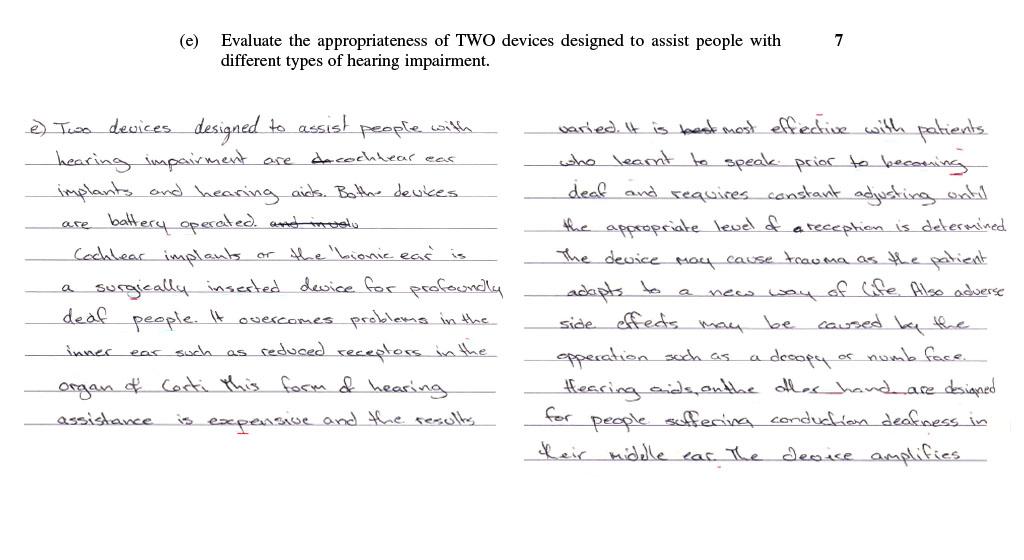 (e) Evaluate the appropriateness of TWO devices designed to assist people with 7
different types of hearing impairment.
e) Two devices designed to assist people with
hearing impairment are cochlear ear
implants and hearing aids. Both devices
are battery operated. and involv
Cochlear implants or the 'bionic ear' is
a surgically inserted device for profoundly
deaf people. It overcomes problems in the
inner ear such as reduced receptors in the
organ of Corti. This form of hearing
assistance is expensive and the results
varied. It is best most effective with patients
who learnt to speak prior to becoming
deaf and requires constant adjusting until
the appropriate level of reception is determined
The device may cause trauma as the patient
adapts to a new way of life. Also adverse
side effects may be caused by the
opperation such as a droopy or numb face.
Hearing aids, on the other hand are designed
for people suffering conduction deafness in
their middle ear. The device amplifies